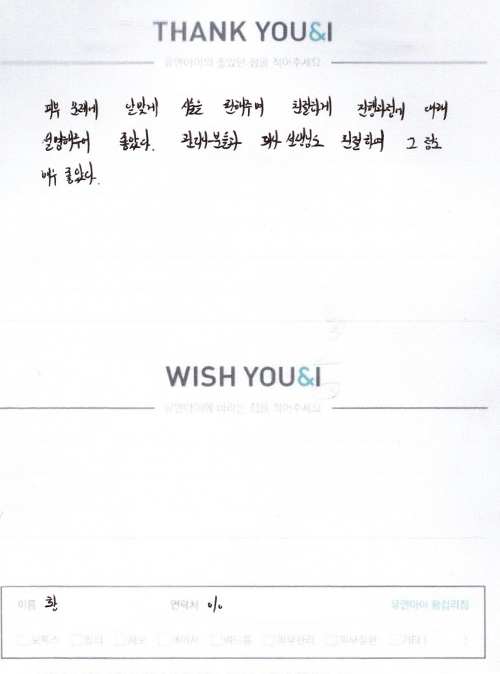 THANK YOU&I
유앤아이의 좋았던 점을 적어주세요
피부 트러블에 알맞게 시술을 권해주며 친절하게 진행과정에 대해
설명해주어 좋았다. 관리사분들과 의사 선생님도 친절하며 그 점도
매우 좋았다.
WISH YOU&I
유앤아이에 바라는 점을 적어주세요
이름 연락처 010 유앤아이 왕십리점
보톡스 필러 제모 레이저 여드름 피부관리 피부질환 기타 ( )